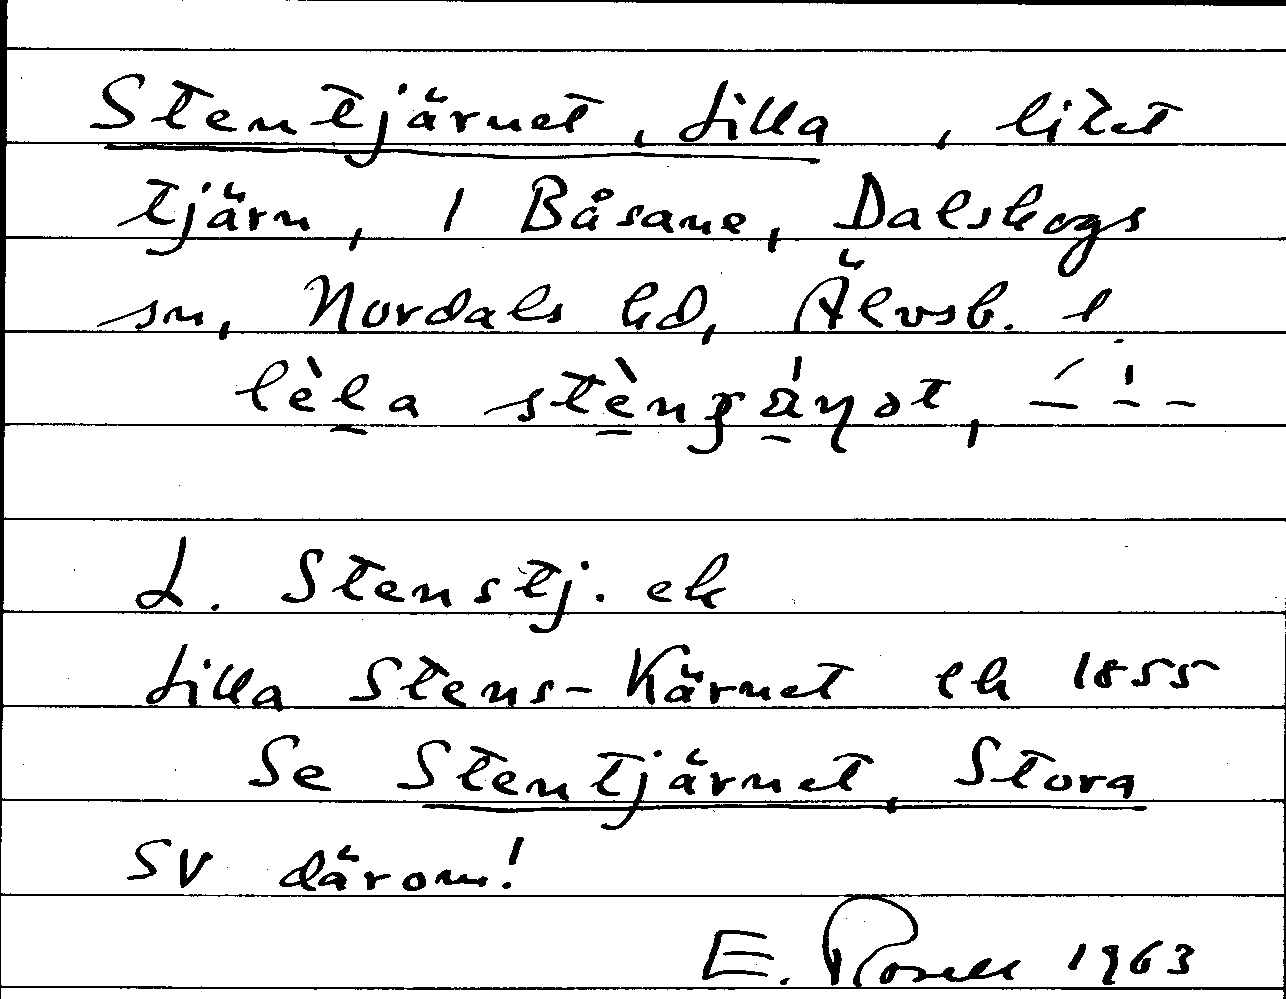 Stentjärnet, Lilla, litet
tjärn, 1 Båsane, Dalskogs
sn, Nordals hd, Älvsb. l
lèla
L. Stenstj. ek
Lilla Stens-Kärnet ek 1855
Se Stentjärnet, Stora
SV därom!
E. Rosell 1963